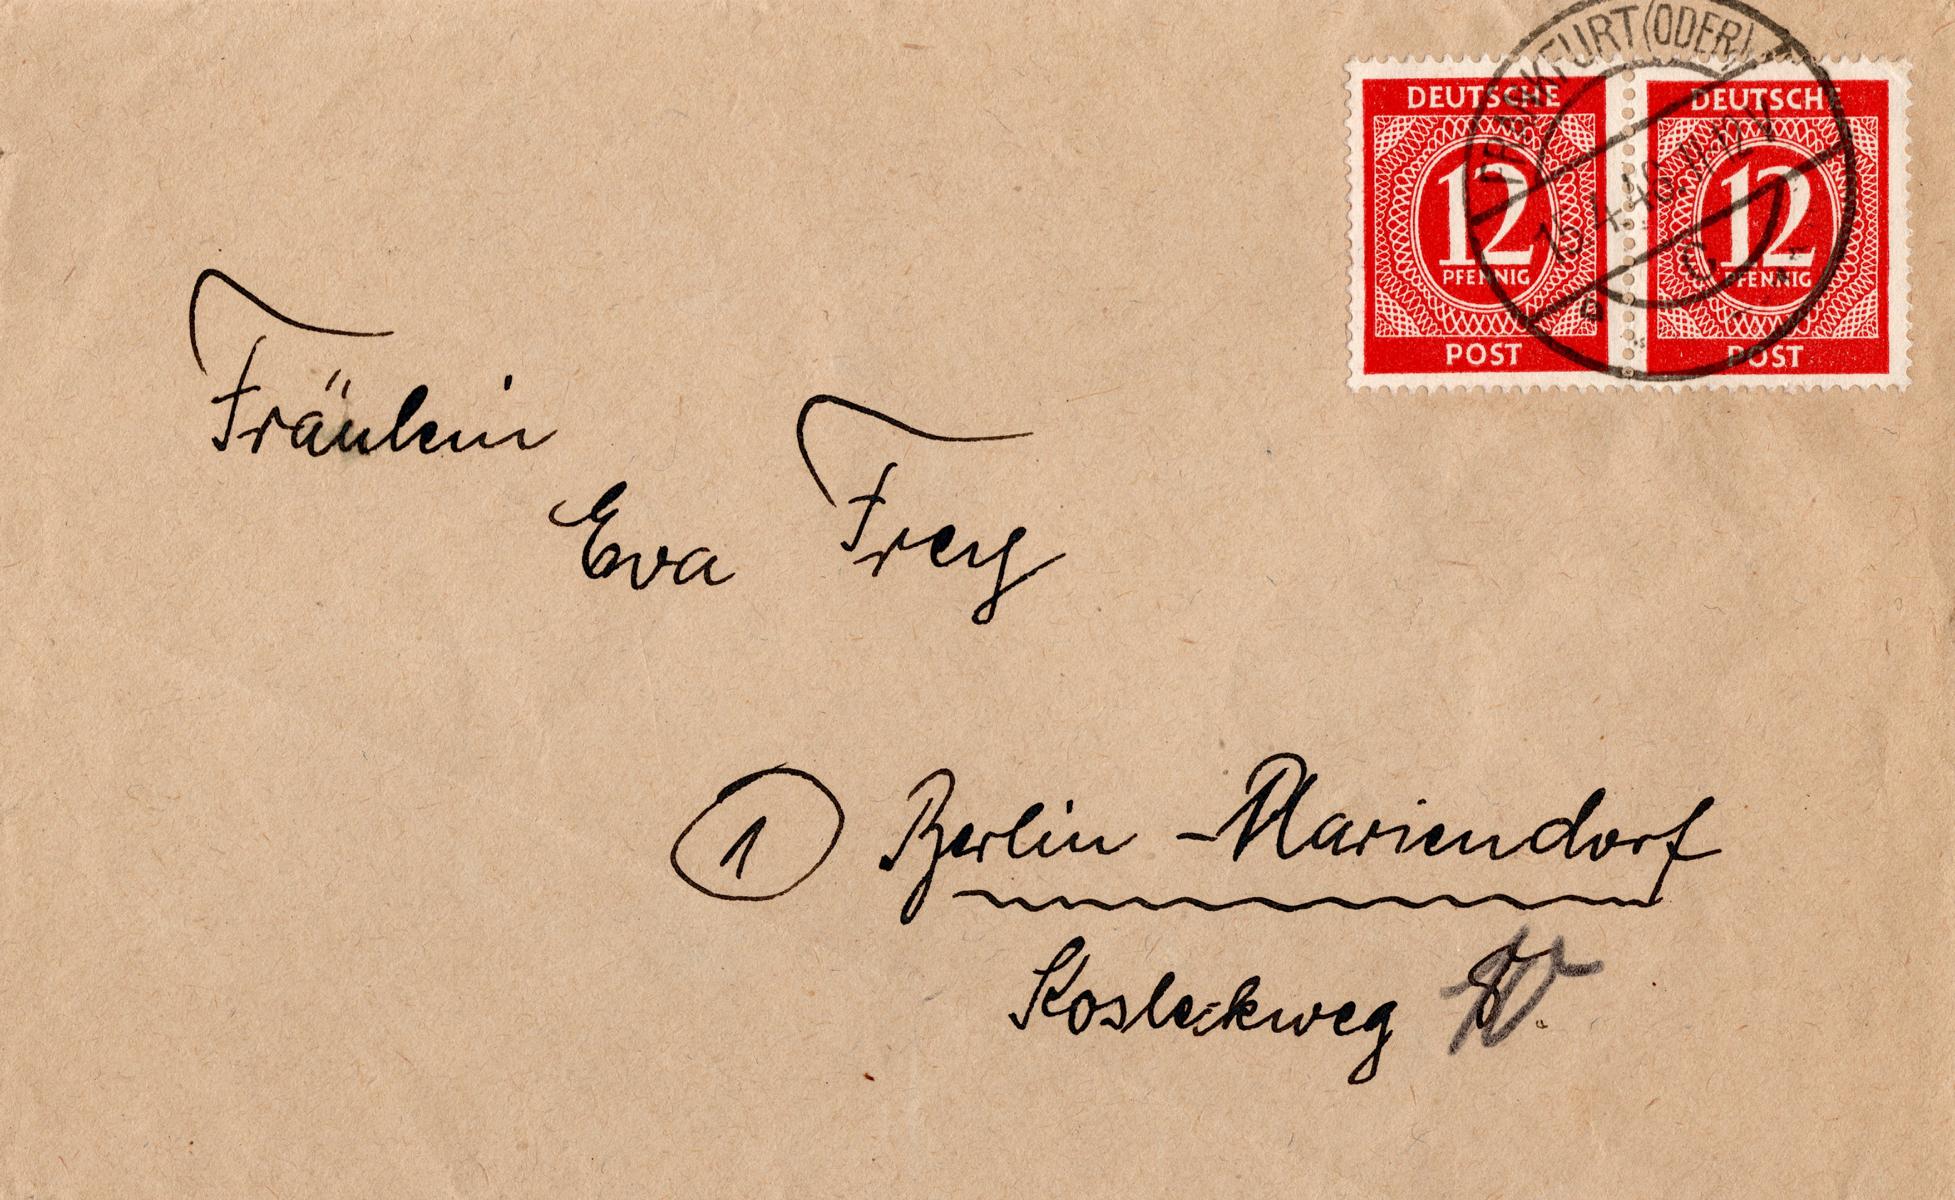 FRANKFURT (ODER)
DEUTSCHE DEUTSCHE
12 12
PFENNIG PFENNIG
POST POST
b c
Fräulein
Eva Frey
1 Berlin-Mariendorf
Kosleckweg 8.